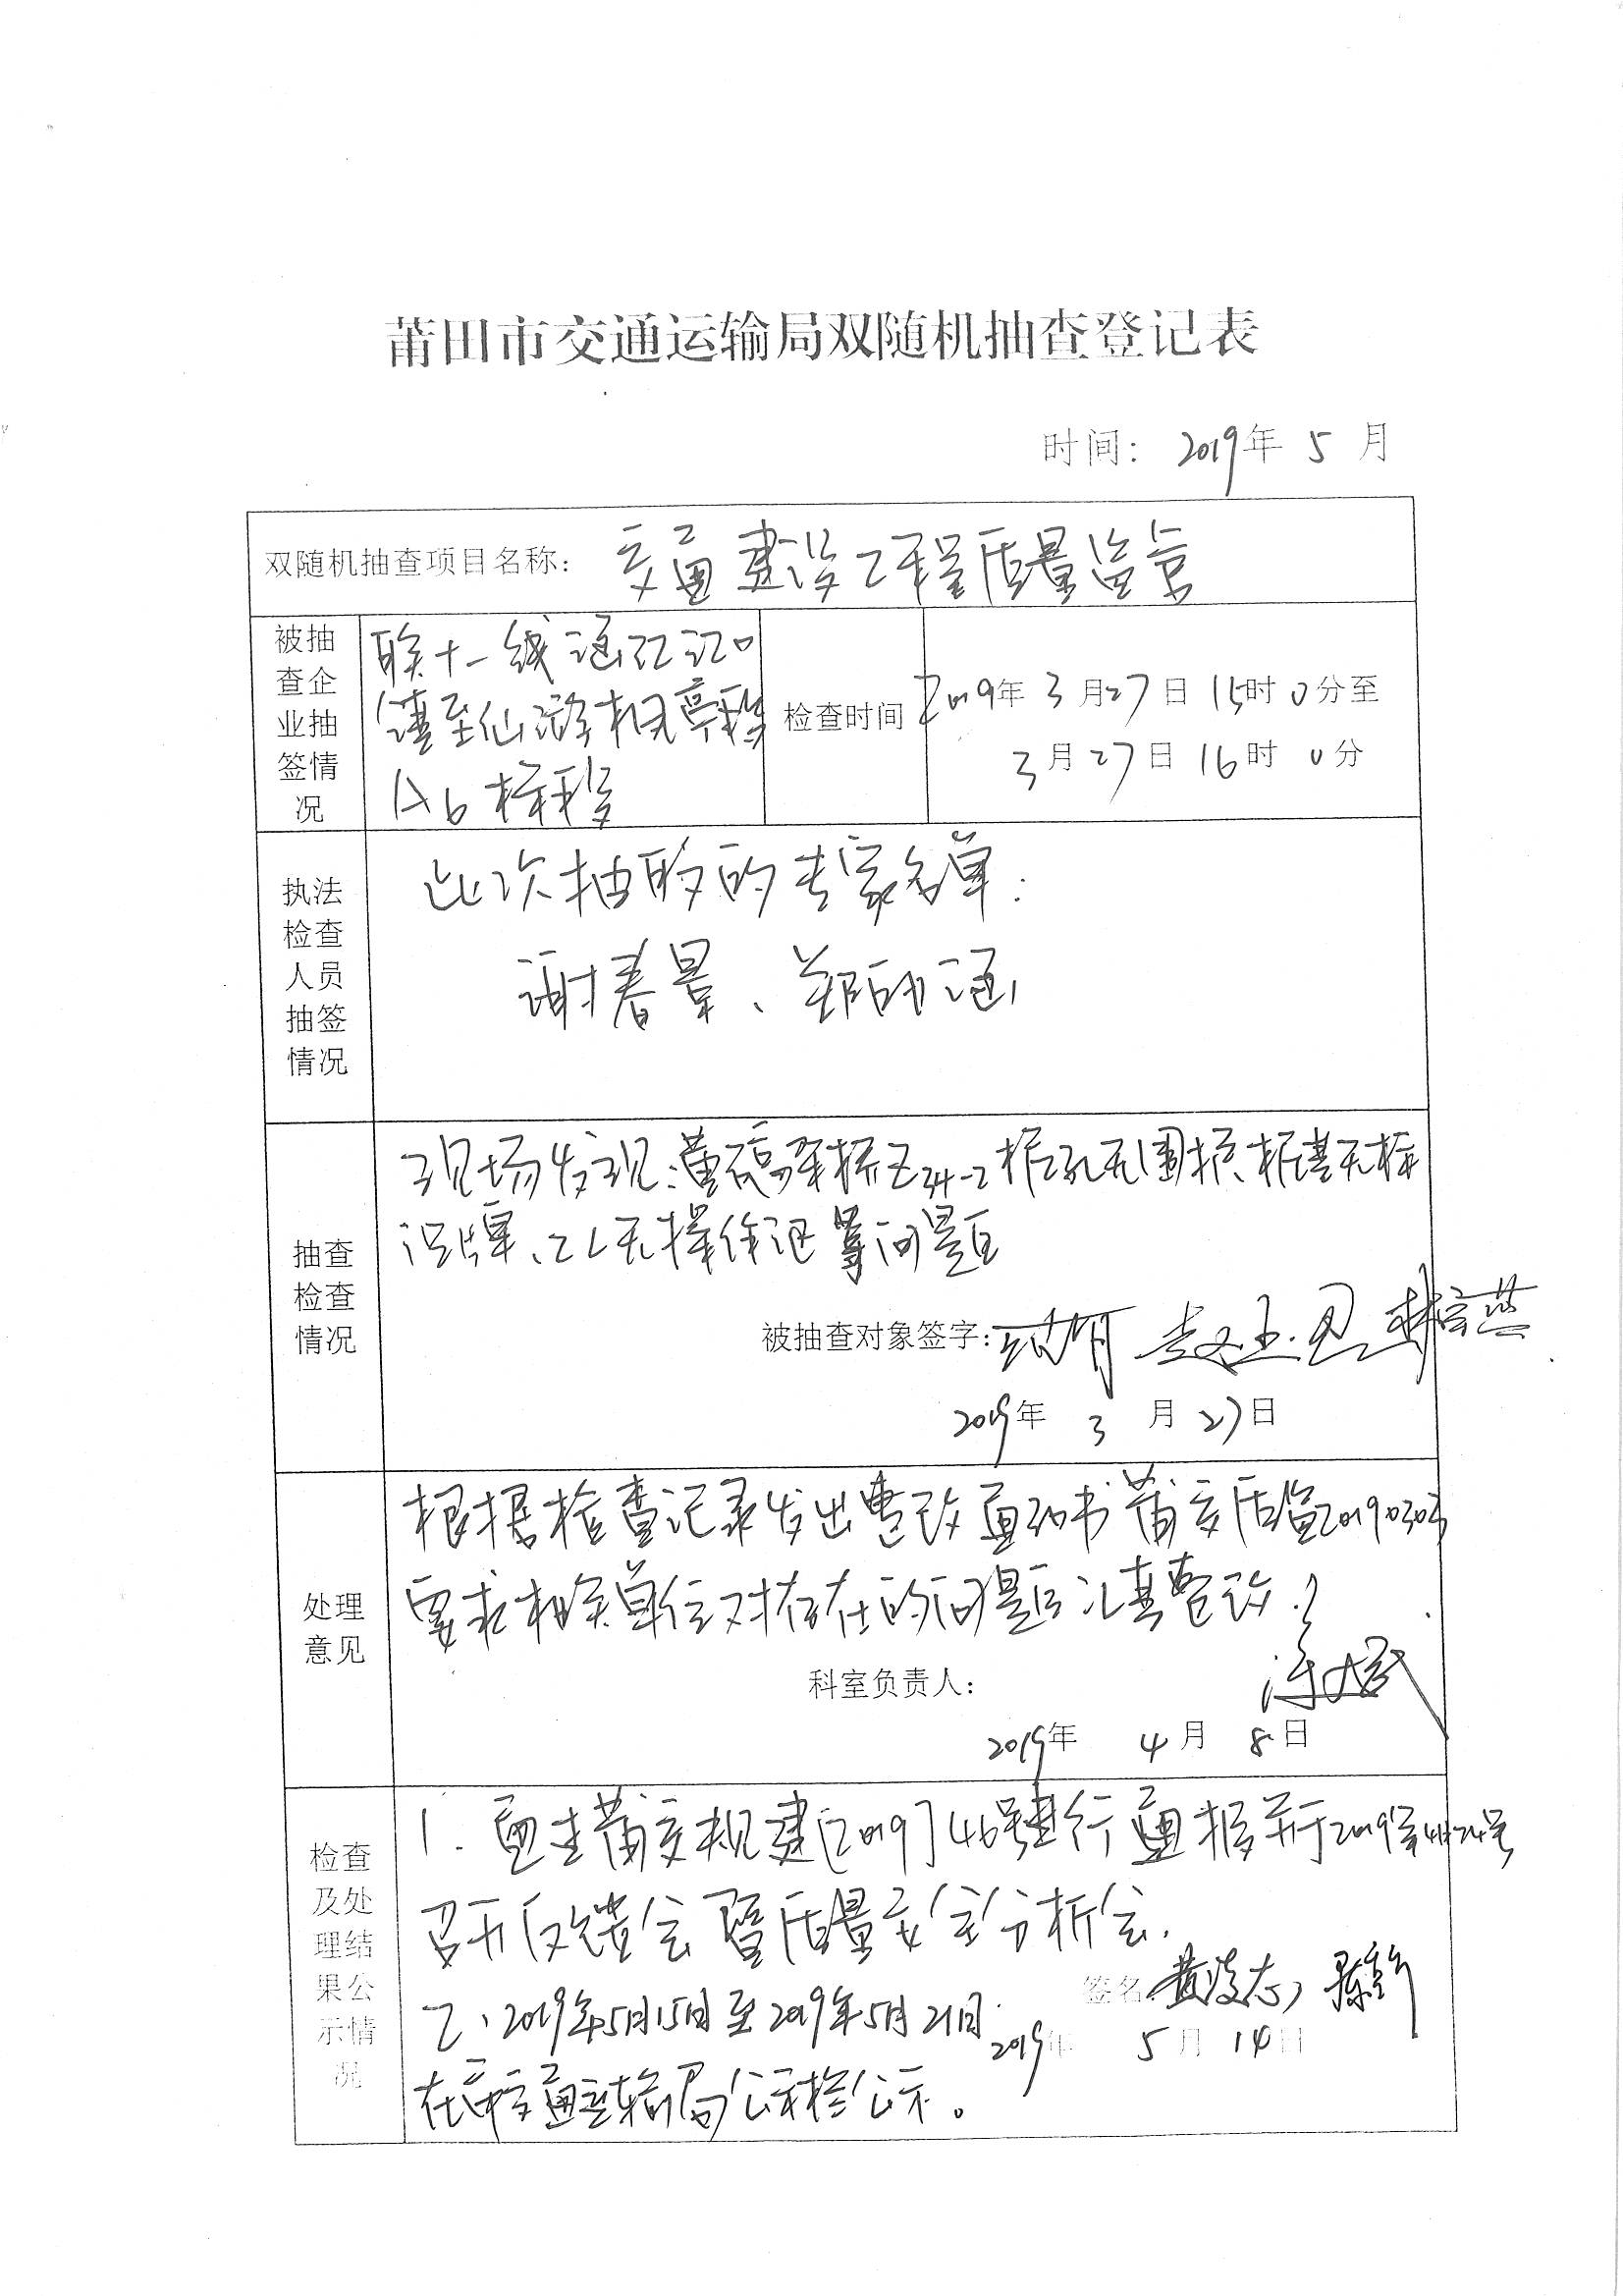 莆田市交通运输局双随机抽查登记表
时间：2019年 5 月
双随机抽查项目名称：交通建设工程质量监管
被抽查企业抽签情况
联十一线涵江江口
镇至仙游枫亭段
A6标段
检查时间
2019年 3 月27日 15时 0分至
3月27日16时 0分
执法检查人员抽签情况
此次抽取的专家名单：
谢春景、郑
抽查检查情况
现场发现：高架桥Z34-2桩孔无围护、桩基无标
识牌、工人无操作证等问题
被抽查对象签字：
2019年 3 月 27日
处理意见
根据检查记录发出整改通知书莆交质监
要求相关单位对存在的问题认真整改。
科室负责人：
2019年 4月 8日
检查及处理结果公示情况
1、通过莆交规建[2019]46号进行通报并于2019年4月24号
召开反馈会暨质量安全分析会.
签名：
2、2019年5月15日至2019年5月21日
2019年 5月 14日
在市交通运输局公示栏公示。